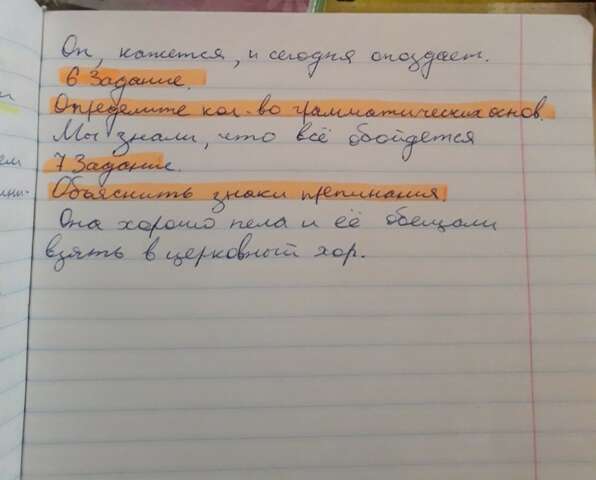 Он, кажется, и сегодня опоздает.
6 Задание.
Определите кол-во грамматических основ.
Мы знали, что всё обойдется
7 Задание.
Объяснить знаки препинания.
Она хорошо пела и её обещали
взять в церковный хор.